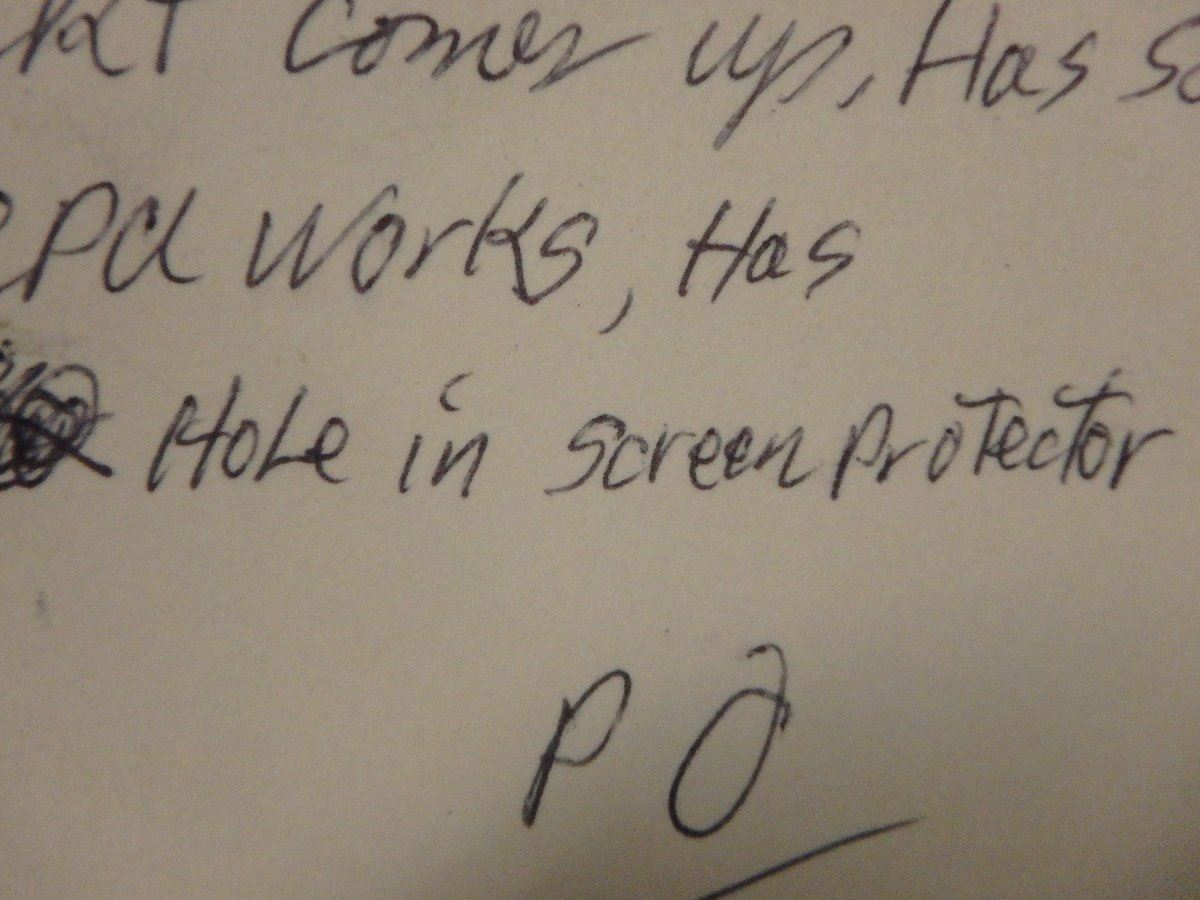 comes up, Has
works, Has
Hole in screen protector
P